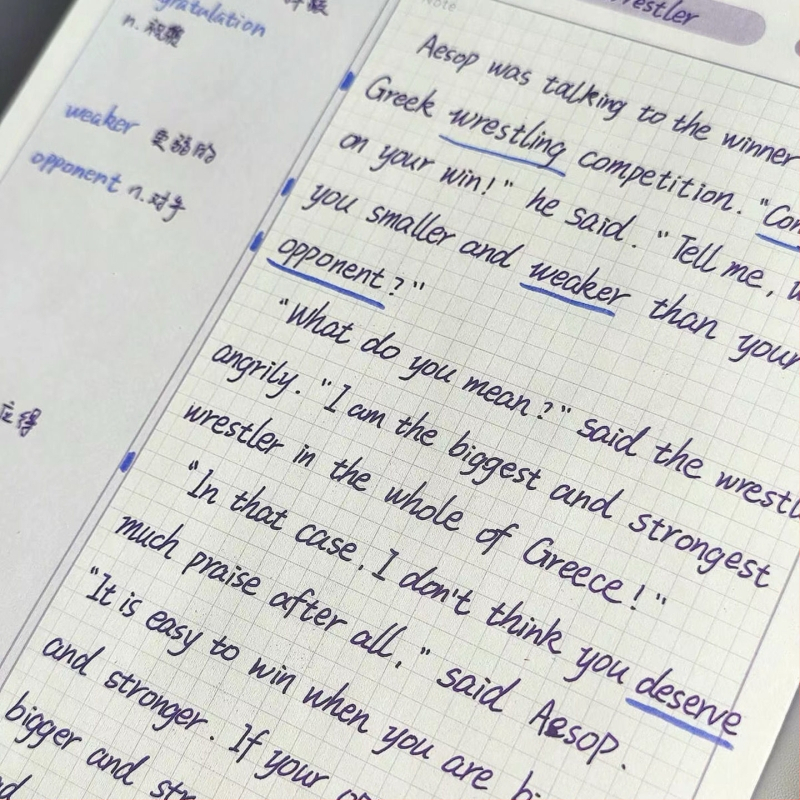 n. 祝贺
weaker 更弱的
opponent n. 对手
应得
Note
Aesop was talking to the winner
Greek wrestling competition. "Con
on your win!" he said. "Tell me, w
you smaller and weaker than your
opponent?"
"What do you mean?" said the wrestl
angrily. "I am the biggest and strongest
wrestler in the whole of Greece!"
"In that case, I don't think you deserve
much praise after all," said Aesop.
"It is easy to win when you are bi
and stronger. If your op
bigger and str